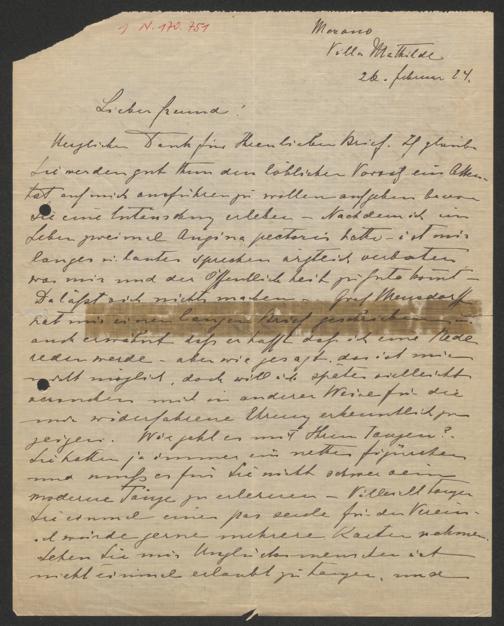 I. N. 170.751
Merano
Villa Mathilde
26. februar 24.
Lieber freund!
Herzlichen Dank für Ihren lieben Brief. Ich glaube
Sie werden gut thun den löblichen Vorsatz ein Atten-
tat auf mich ausführen zu wollen aufgeben bevor
Sie eine Entäuschung erleben – Nachdem ich im
Leben zweimal Angina pectoris hatte – ist mir
langes u. lautes sprechen ärztlich verboten
was mir und der Öffentlichkeit zu gute kömt –
Da läßt sich nichts machen – Graf Mensdorff
hat mir einen langen Brief geschrieben
auch erwähnt daß er hofft daß ich eine Rede
reden werde – aber wie gesagt, das ist mir
nicht möglich, doch will ich später vielleicht
versuchen mich in anderer Weise für die
mir widerfahrene Ehrung erkenntlich zu
zeigen. Wie geht es mit Ihrem Tanzen?
Sie hatten ja immer ein nettes figürchen
und muß es für Sie nicht schwer sein
moderne Tänze zu erlernen – Vielleicht tanzen
Sie einmal einen pas seule für den Verein –
ich würde gerne mehrere Karten nehmen.
Sehen Sie mir Unglücksmenschen ist
nicht einmal erlaubt zu tanzen, und